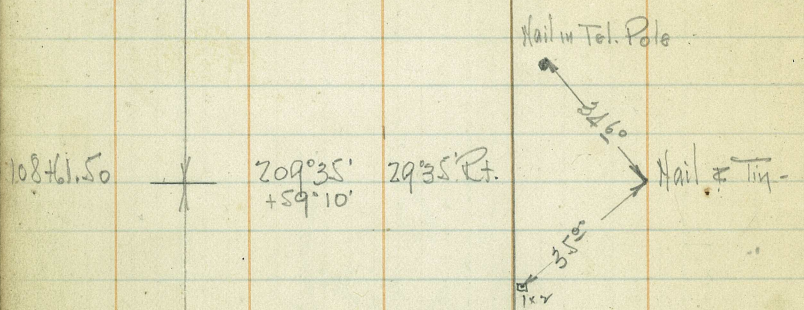 Nail in Tel. Pole
34.60
108+61.50 209°35' 29°35' Rt. Nail & Tin -
+59°10'
35.00
1x2